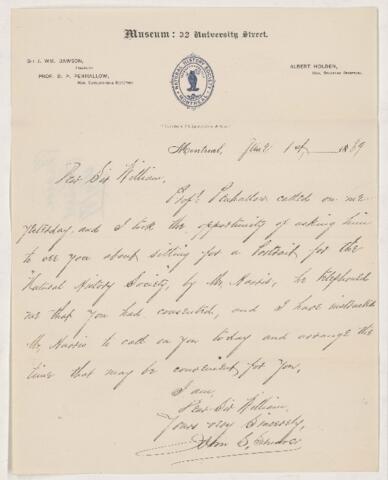 Museum: 32 University Street.
Sir J. Wm. Dawson,
President
Prof. D. P. Penhallow,
Hon. Corresponding Secretary
NATURAL HISTORY SOCIETY
MONTREAL
Albert Holden,
Hon. Recording Secretary.
Montreal, June 1st, 1889
Dear Sir William,
Prof. Penhallow called on me
yesterday, and I took the opportunity of asking him
to see you about sitting for a Portrait for the
Natural History Society, by Mr. Harris, he telephoned
me that you had consented, and I have instructed
Mr. Harris to call on you today and arrange the
time that may be convenient for you,
I am,
Dear Sir William,
Yours very Sincerely,
John S. Shearer